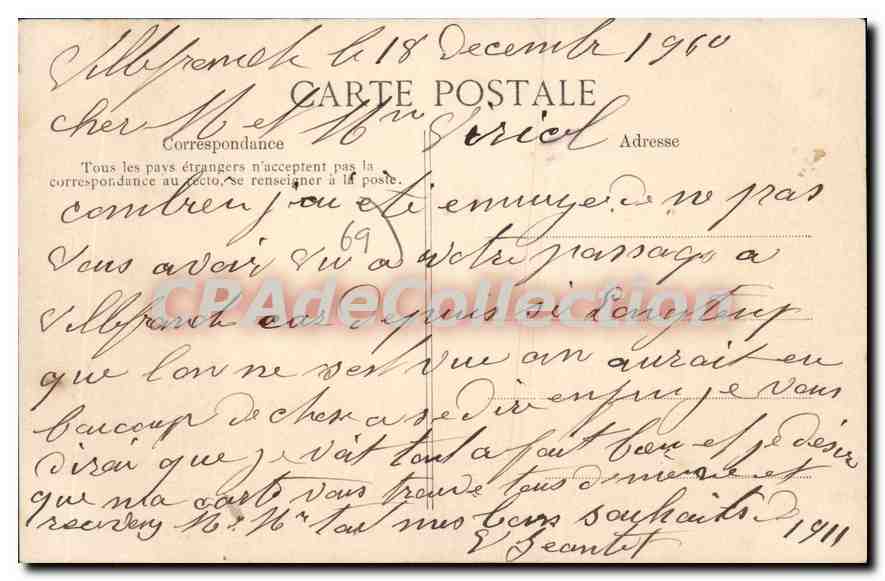 Villefranche le 18 Decembr 1910
CARTE POSTALE
cher M et Mm Viriol
Correspondance
Adresse
Tous les pays étrangers n'acceptent pas la
correspondance au recto, se renseigner à la poste.
combien j'ai été ennuyer de ne pas
69
vous avoir vu a votre passage a
CPAdeCollection
Villefranche car depuis si Longtemp
que lon ne sest vue on aurait eu
baucoup de chose a se dire enfin je vous
dirai que je vait tout a fait bien et je désir
que ma carte vous trouve tous de même et
recevez Me Mr tout mes bons souhaits de 1911
E Jeantet